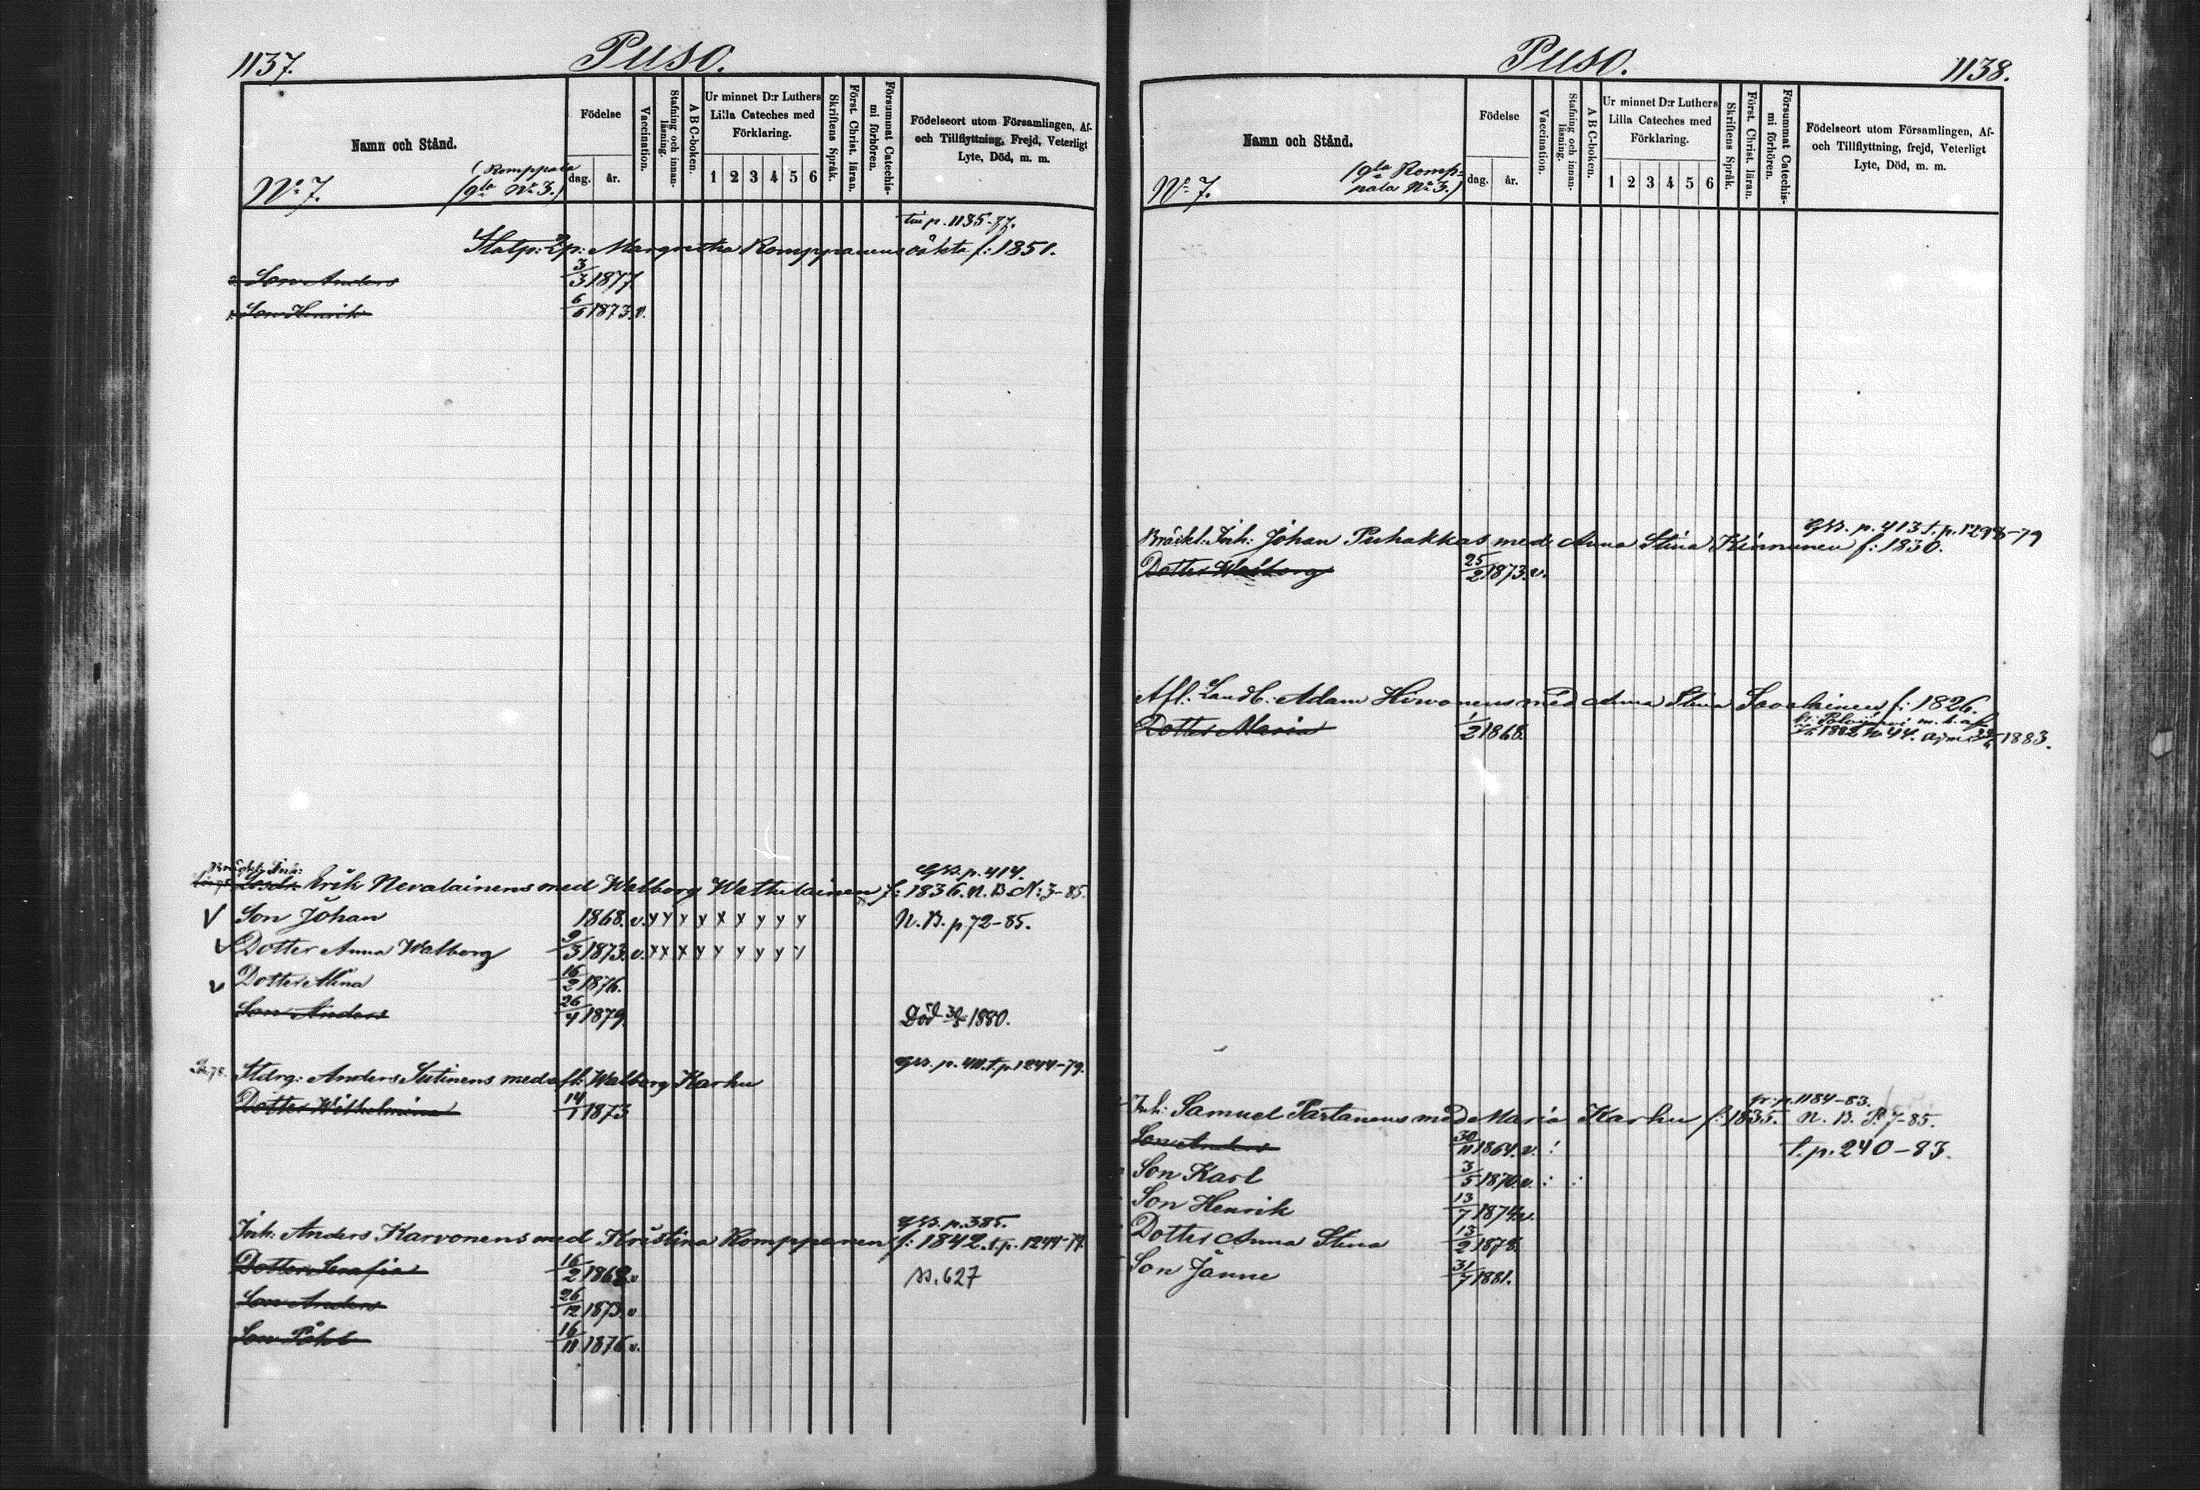 1137.
Puso.
Namn och Stånd.
Födelse
dag.
år.
Vaccination.
Stafning och innan-läsning.
A B C-boken.
Ur minnet D:r Luthers
Lilla Cateches med
Förklaring.
1 2 3 4 5 6
Skriftens Språk.
Först. Christ. läran.
Försummat Catechis-mi förhören.
Födelseort utom Församlingen, Af-
och Tillflyttning, Frejd, Veterligt
Lyte, Död, m. m.
(Romppala
No 7. /gla No 3.)
p. 1135-77.
Margretha Romppanens oäkta f: 1851.
Son Anders 3/3 1877
Son Henrik 6/6 1873. v.
Bräckl. Inh:
Erik Nevalainens med Walborg Wattulainen f: 1836. N. B. N: 3-85.
p. 414.
Son Johan 1868. v. N. B. p 72-85.
Dotter Anna Walborg 9/3 1873. v.
Dotter Alina 16/2 1876.
Son Anders 26/4 1879. Död 30/5 1880.
Anders Sutinens med afl: Walborg Karhu
t. p 1244-79.
Dotter Wilhelmina 14/1 1873
p. 385.
Inh: Anders Karvonens med Kristina Romppanen f: 1842. t. p. 1244-79
Dotter Serafia 16/2 1868. v s. 627
Son Anders 26/12 1873. v
Son Påhl 16/11 1876. v.
Puso.
1138.
Namn och Stånd.
Födelse
dag.
år.
Vaccination.
Stafning och innan-läsning.
A B C-boken.
Ur minnet D:r Luthers
Lilla Cateches med
Förklaring.
1 2 3 4 5 6
Skriftens Språk.
Först. Christ. läran.
Försummat Catechis-mi förhören.
Födelseort utom Församlingen, Af-
och Tillflyttning, frejd, Veterligt
Lyte, Död, m. m.
No 7. (gla Romp-
pala No 3.)
p. 413 t. p. 1298-79
Bräckl: Inh: Johan Puhakkas med Anna Stina Kinnunen f: 1830.
Dotter Walborg 25/2 1873. v.
Afl: Landb: Adam Hirvonens med Anna Stina Savolainen f: 1826.
Dotter Maria 1/2 1868. 1882 1883.
fr: p. 1184-83.
Inh: Samuel Partanens med Maria Karhu f: 1835. N. B. P. 7-85.
Son Anders 30/11 1864. v. t. p. 240-83.
Son Karl 3/5 1870. v.
Son Henrik 13/7 1874. v.
Dotter Anna Stina 13/2 1878.
Son Janne 31/7 1881.